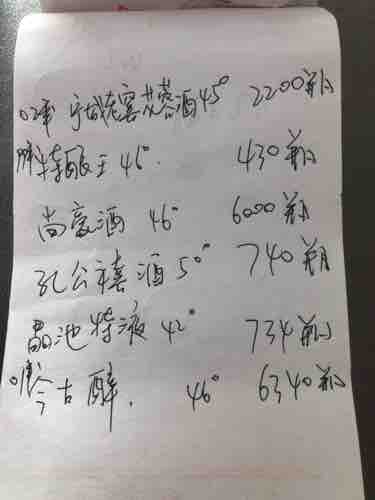 02年 宁城老窖苁蓉酒45° 2200瓶
特酿王 46° 430瓶
尚豪酒 46° 6000瓶
孔公禧酒 50° 740瓶
晶池特液 42° 734瓶
今古醉. 46° 6340瓶